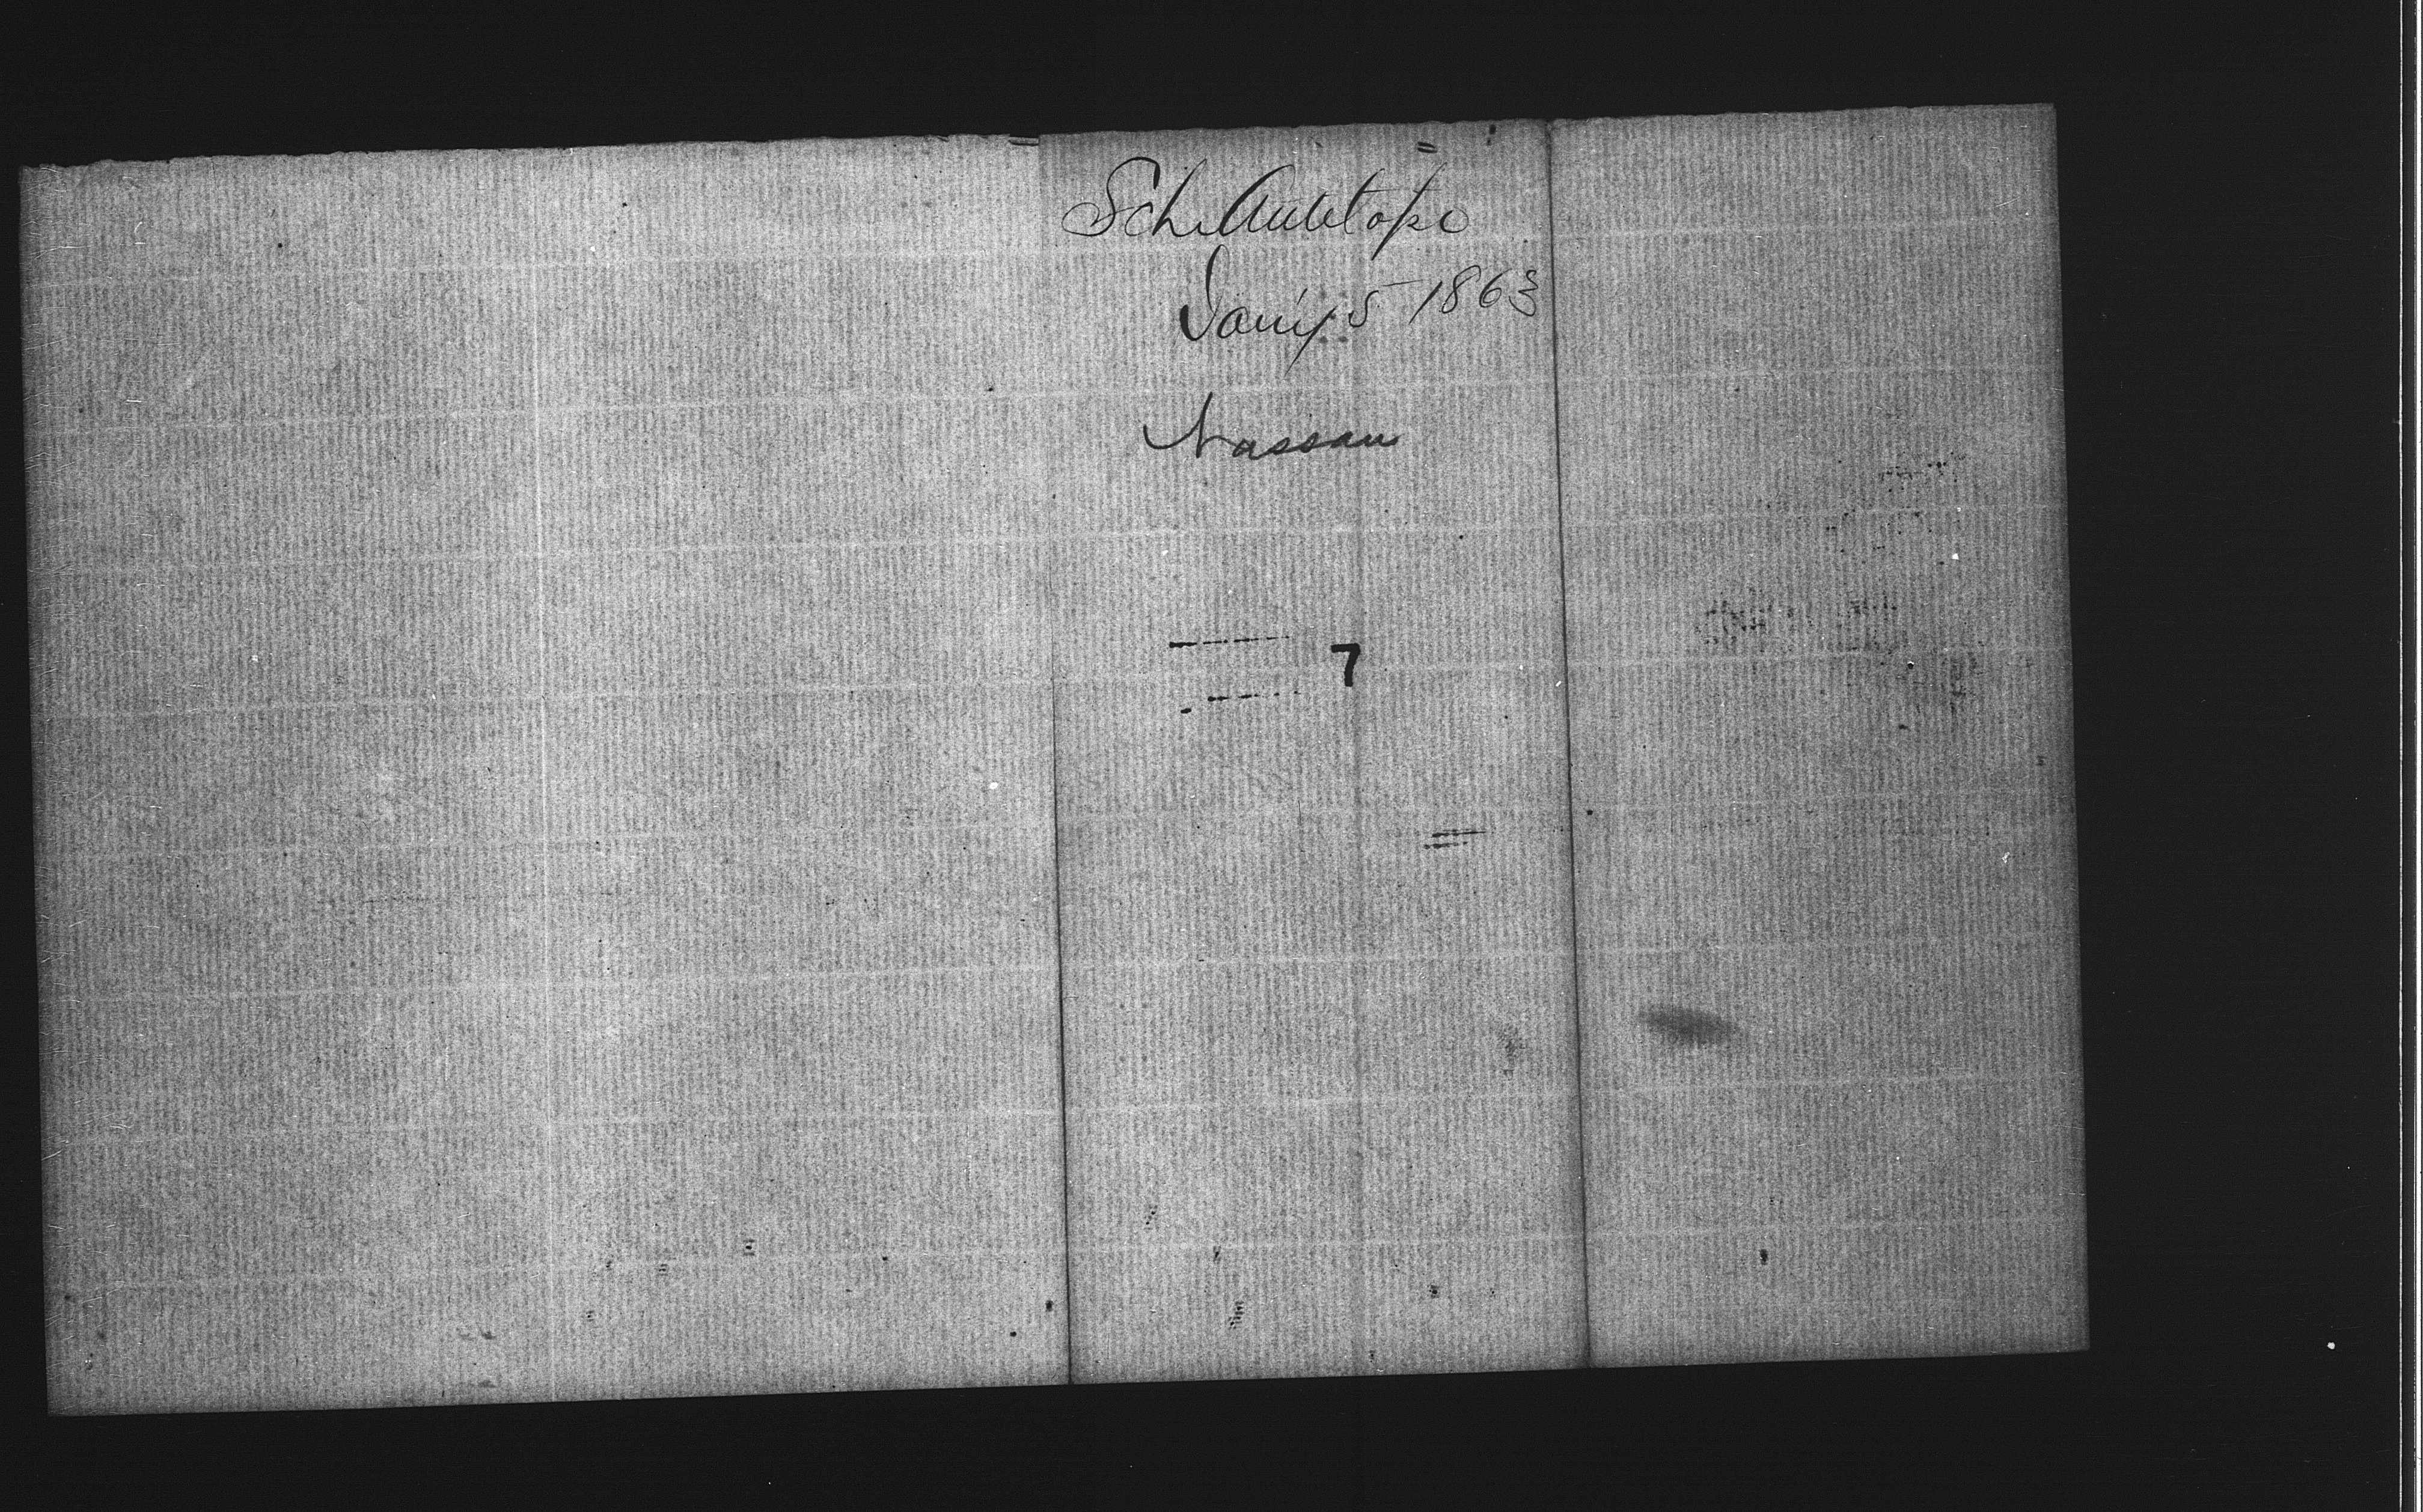 Sch. Antelope
Jan'y 5 1863
Nassau
7